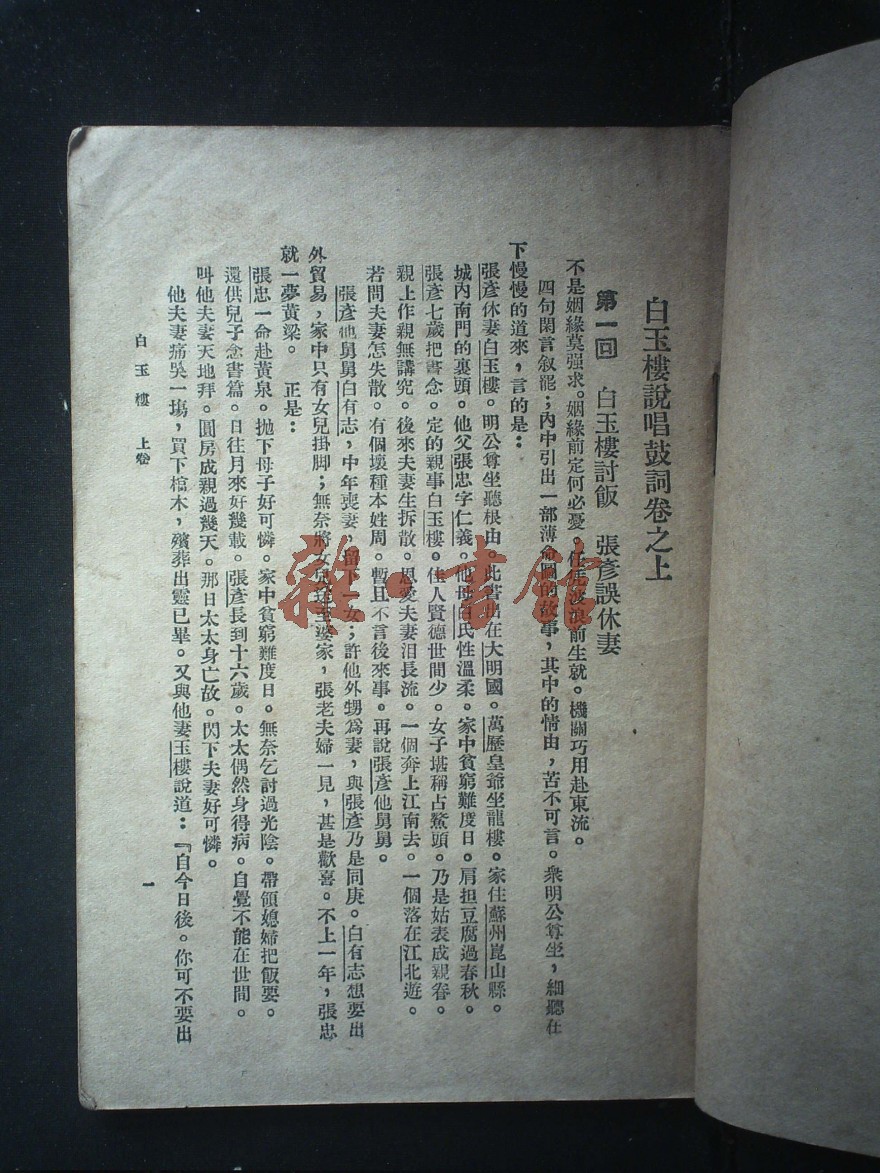 白玉樓說唱鼓詞卷之上
第一回　白玉樓討飯　張彥誤休妻
不是姻緣莫强求。姻緣前定何必憂，任從波浪前生就。機關巧用赴東流。
四句閑言叙罷；內中引出一部薄命圖的故事，其中的情由，苦不可言。衆明公尊坐，細聽在
下慢慢的道來，言的是：
張彥休妻白玉樓。明公尊坐聽根由。此書出在大明國。萬歷皇爺坐龍樓。家住蘇州崑山縣。
城內南門的裏頭。他父張忠字仁義。他母白氏性溫柔。家中貧窮難度日。肩担豆腐過春秋。
張彥七歲把書念。定的親事白玉樓。佳人賢德世間少。女子堪稱占鰲頭。乃是姑表成親眷。
親上作親無講究。後來夫妻生拆散。恩愛夫妻泪長流。一個奔上江南去。一個落在江北遊。
若問夫妻怎失散。有個壞種本姓周。暫且不言後來事。再說張彥他舅舅。
張彥他舅舅白有志，中年喪妻，留下一女；許他外甥爲妻，與張彥乃是同庚。白有志想要出
外貿易，家中只有女兒掛脚；無奈將女兒送至婆家，張老夫婦一見，甚是歡喜。不上一年，張忠
就一夢黃梁。　正是：
張忠一命赴黃泉。抛下母子好可憐。家中貧窮難度日。無奈乞討過光陰。帶領媳婦把飯要。
還供兒子念書篇。日往月來好幾載。張彥長到十六歲。太太偶然身得病。自覺不能在世間。
叫他夫妻天地拜。圓房成親過幾天。那日太太身亡故。閃下夫妻好可憐。
他夫妻痛哭一塲，買下棺木，殯葬出靈已畢。又與他妻玉樓說道：『自今日後。你可不要出
白玉樓　上卷
一
雜·書館